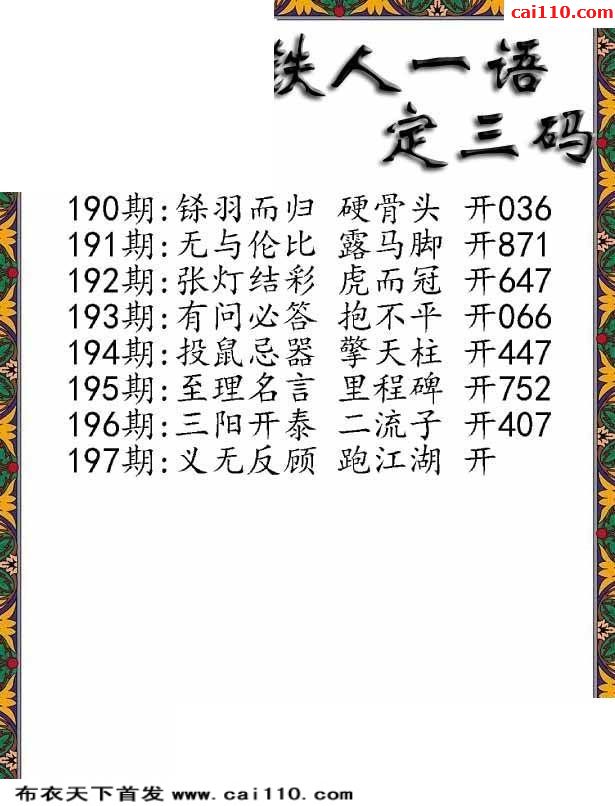 cai110.com
铁人一语
定三码
190期:铩羽而归 硬骨头 开036
191期:无与伦比 露马脚 开871
192期:张灯结彩 虎而冠 开647
193期:有问必答 抱不平 开066
194期:投鼠忌器 擎天柱 开447
195期:至理名言 里程碑 开752
196期:三阳开泰 二流子 开407
197期:义无反顾 跑江湖 开
布衣天下首发 www.cai110.com